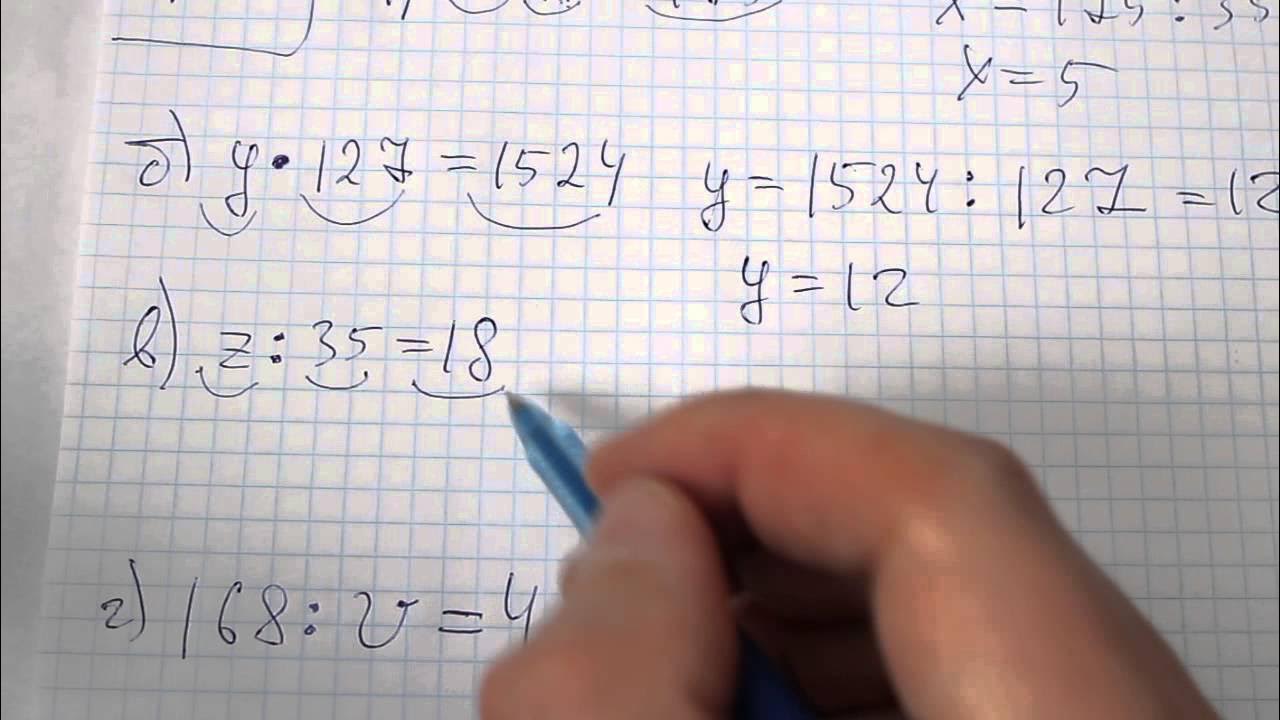 x = 175 : 35
x = 5
б) y · 127 = 1524 y = 1524 : 127 = 12
y = 12
в) z : 35 = 18
г) 168 : v = 4